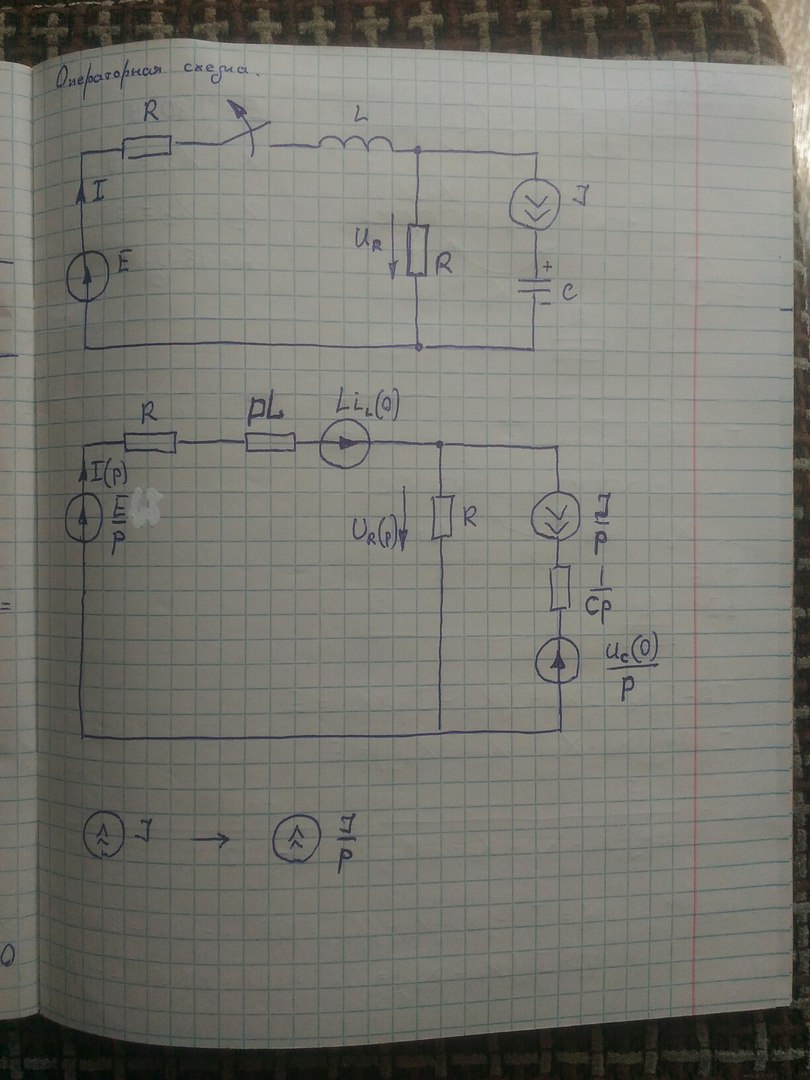 Операторная схема.
R L
I J
U_R
E R + C
-
R pL Li_L(0)
I(p)
E/p U_R(p) R J/p
1/Cp
u_c(0)/p
J → J/p
=
0